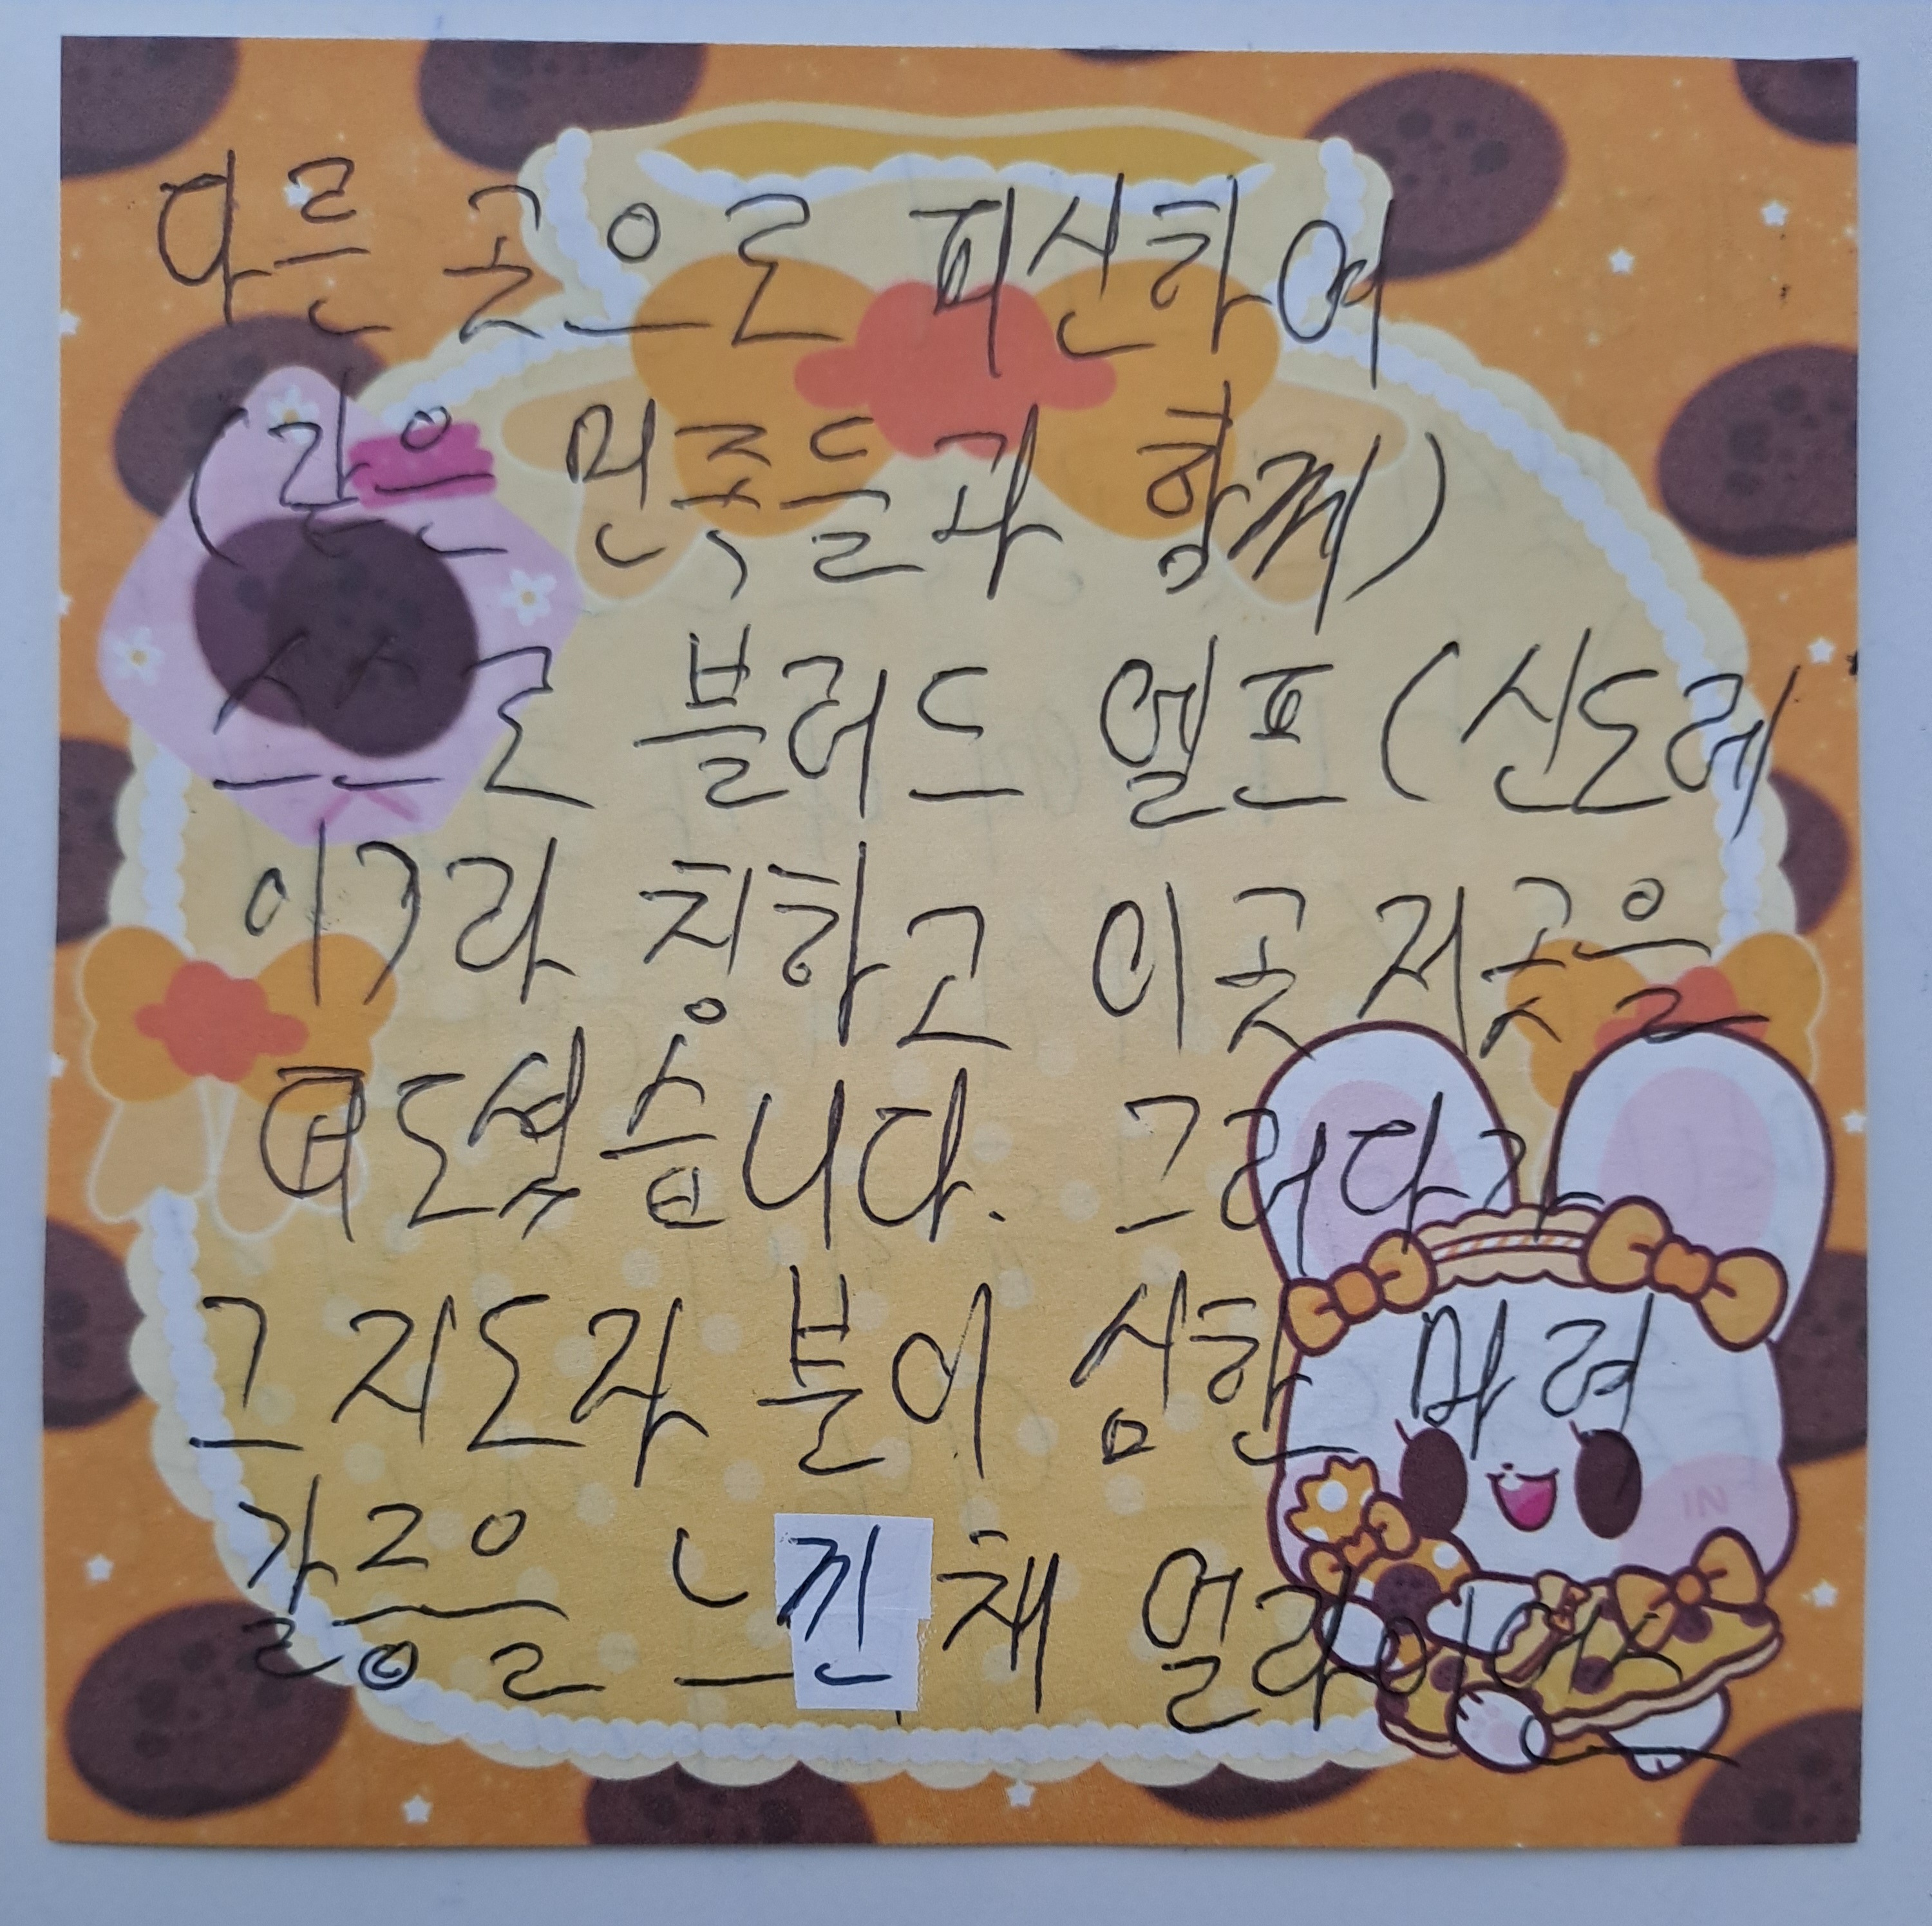 다른 곳으로 피신하여
(같은 민족들과 함께)
스스로 블러드 엘프(신도레
이)라 칭하고 이곳저곳을
떠도셨습니다. 그러다가
그 지도자 분이 심한 마력
갈증을 느낀 채 일리아
IN